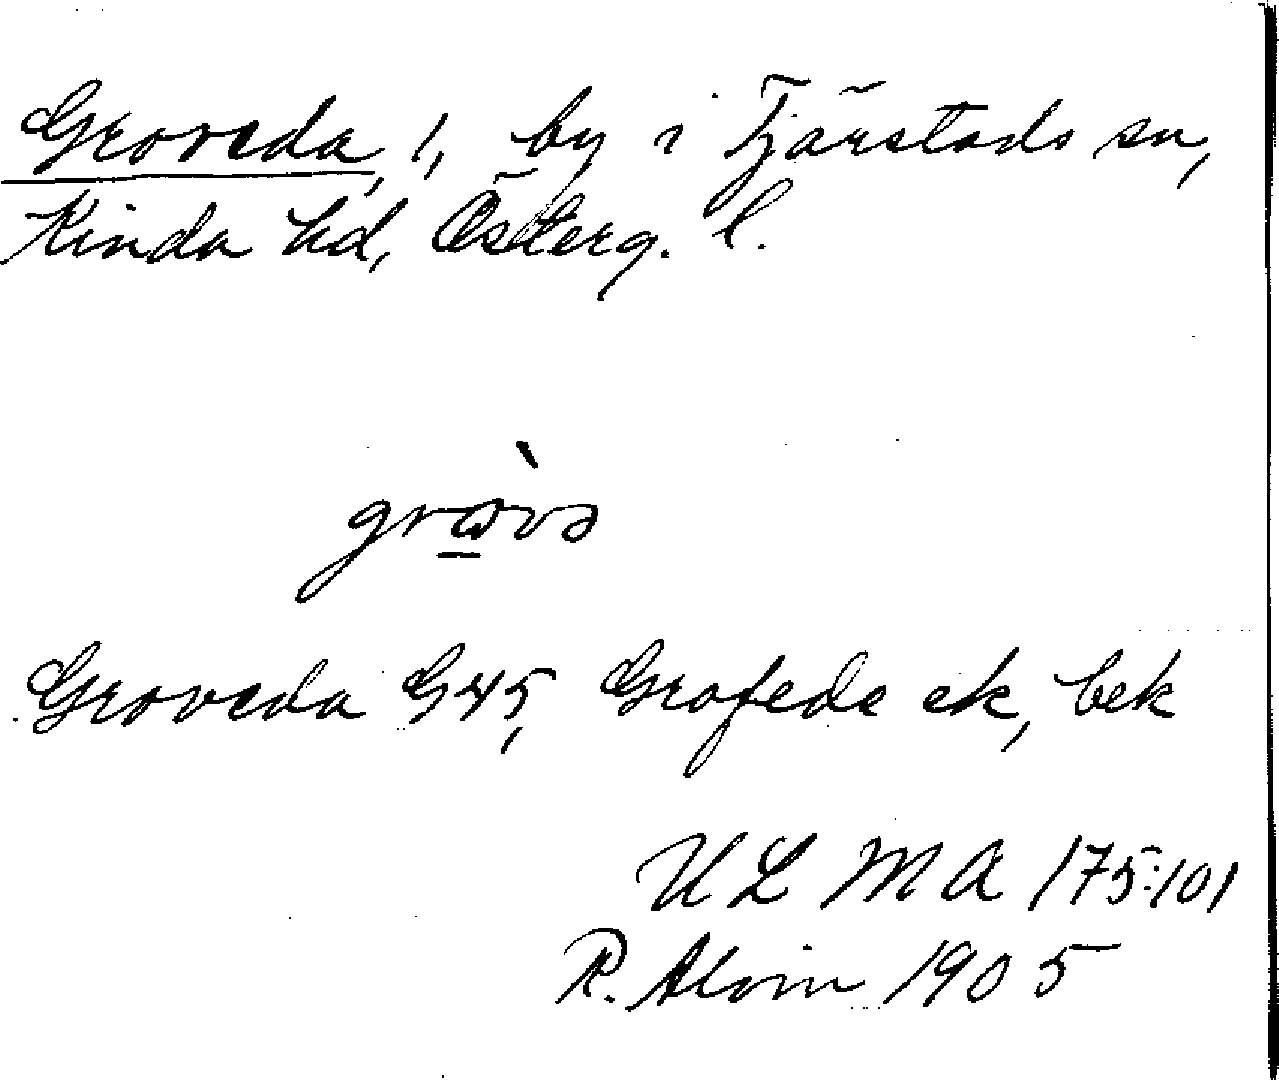 Groveda, 1, by i Tjärstads sn,
Kinda hd, Österg. l.
gròvə
Groveda G45, Grofede ek, bek
ULMA 175:101
R. Alvin 1905